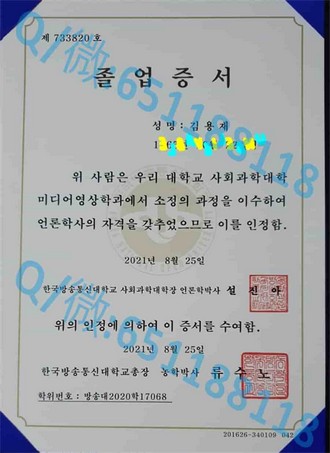 제 733820 호
졸업증서
성명 : 김용재
위 사람은 우리 대학교 사회과학대학
미디어영상학과에서 소정의 과정을 이수하여
언론학사의 자격을 갖추었으므로 이를 인정함.
2021년 8월 25일
한국방송통신대학교 사회과학대학장 언론학박사 설진아
위의 인정에 의하여 이 증서를 수여함.
2021년 8월 25일
한국방송통신대학교총장 농학박사 류수노
학위번호 : 방송대2020학17068
201626-340109 042
Q/微:651188118
Q/微:651188118